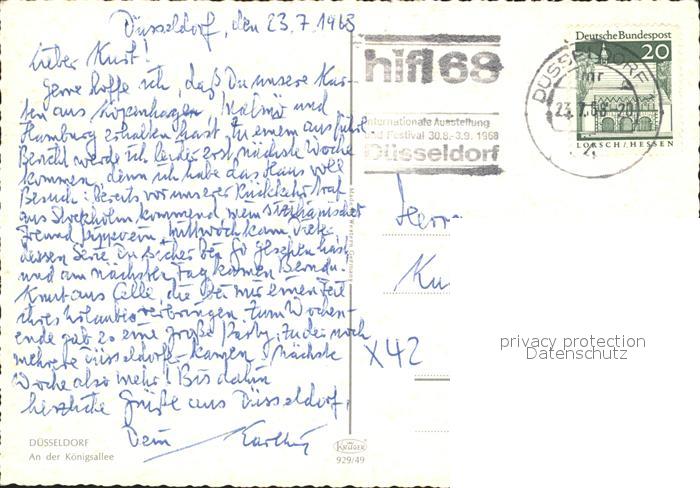 Düsseldorf, den 23.7.1968
Lieber Kurt!
Gerne hoffe ich, daß Du unsere Kar-
ten aus Kopenhagen, Malmö und
Hamburg erhalten hast. Zu einem ausführl.
Bericht werde ich leider erst nächste Woche
kommen, denn ich habe das Haus voll
Besuch: Bereits vor unserer Rückkehr traf
aus Stockholm kommend, mein
Freund ein, Mittwoch kam
dessen Serie Du sicher bei Go gesehen hast
und am nächsten Tag kamen Bernd u.
Knut aus Celle, die bei mir einen Teil
ihres Urlaubs verbringen. Zum Wochen-
ende gab es eine große Party, zu der noch
mehrere Düsseldorfer kamen. Nächste
Woche also mehr! Bis dahin
herzliche Grüße aus Düsseldorf,
Dein
DÜSSELDORF
An der Königsallee
KRÜGER
929/49
hifi 68
Internationale Ausstellung
und Festival 30.8.-3.9. 1968
Düsseldorf
DÜSSELDORF 1
23.7.68-20
Deutsche Bundespost
20
LORSCH/HESSEN
Herrn
Ku
X42
privacy protection
Datenschutz